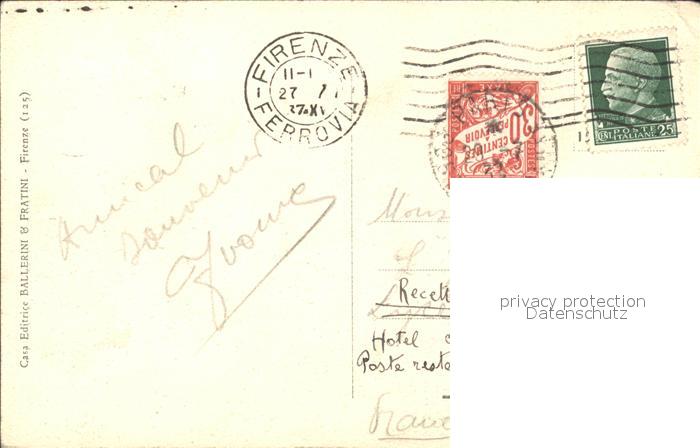 FIRENZE
11-1
27
37·XV
FERROVIA
30
CENTIMES
A PERCEVOIR
POSTE
ITALIANE
25
Casa Editrice BALLERINI & FRATINI - Firenze (125)
Amical
Souvenir
Yvonne
Mons
Recett
Hotel
Poste reste
France
privacy protection
Datenschutz